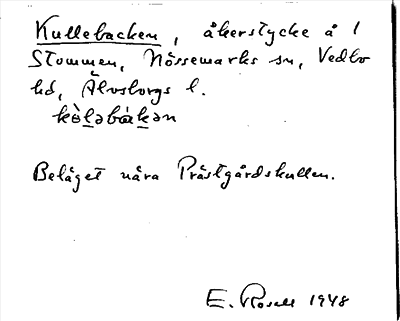 Kullebacken, åkerstycke å 1
Stommen, Nössemarks sn, Vedbo
hd, Älvsborgs l.
kòləbákən
Beläget nära Prästgårdskullen.
E. Rosell 1948